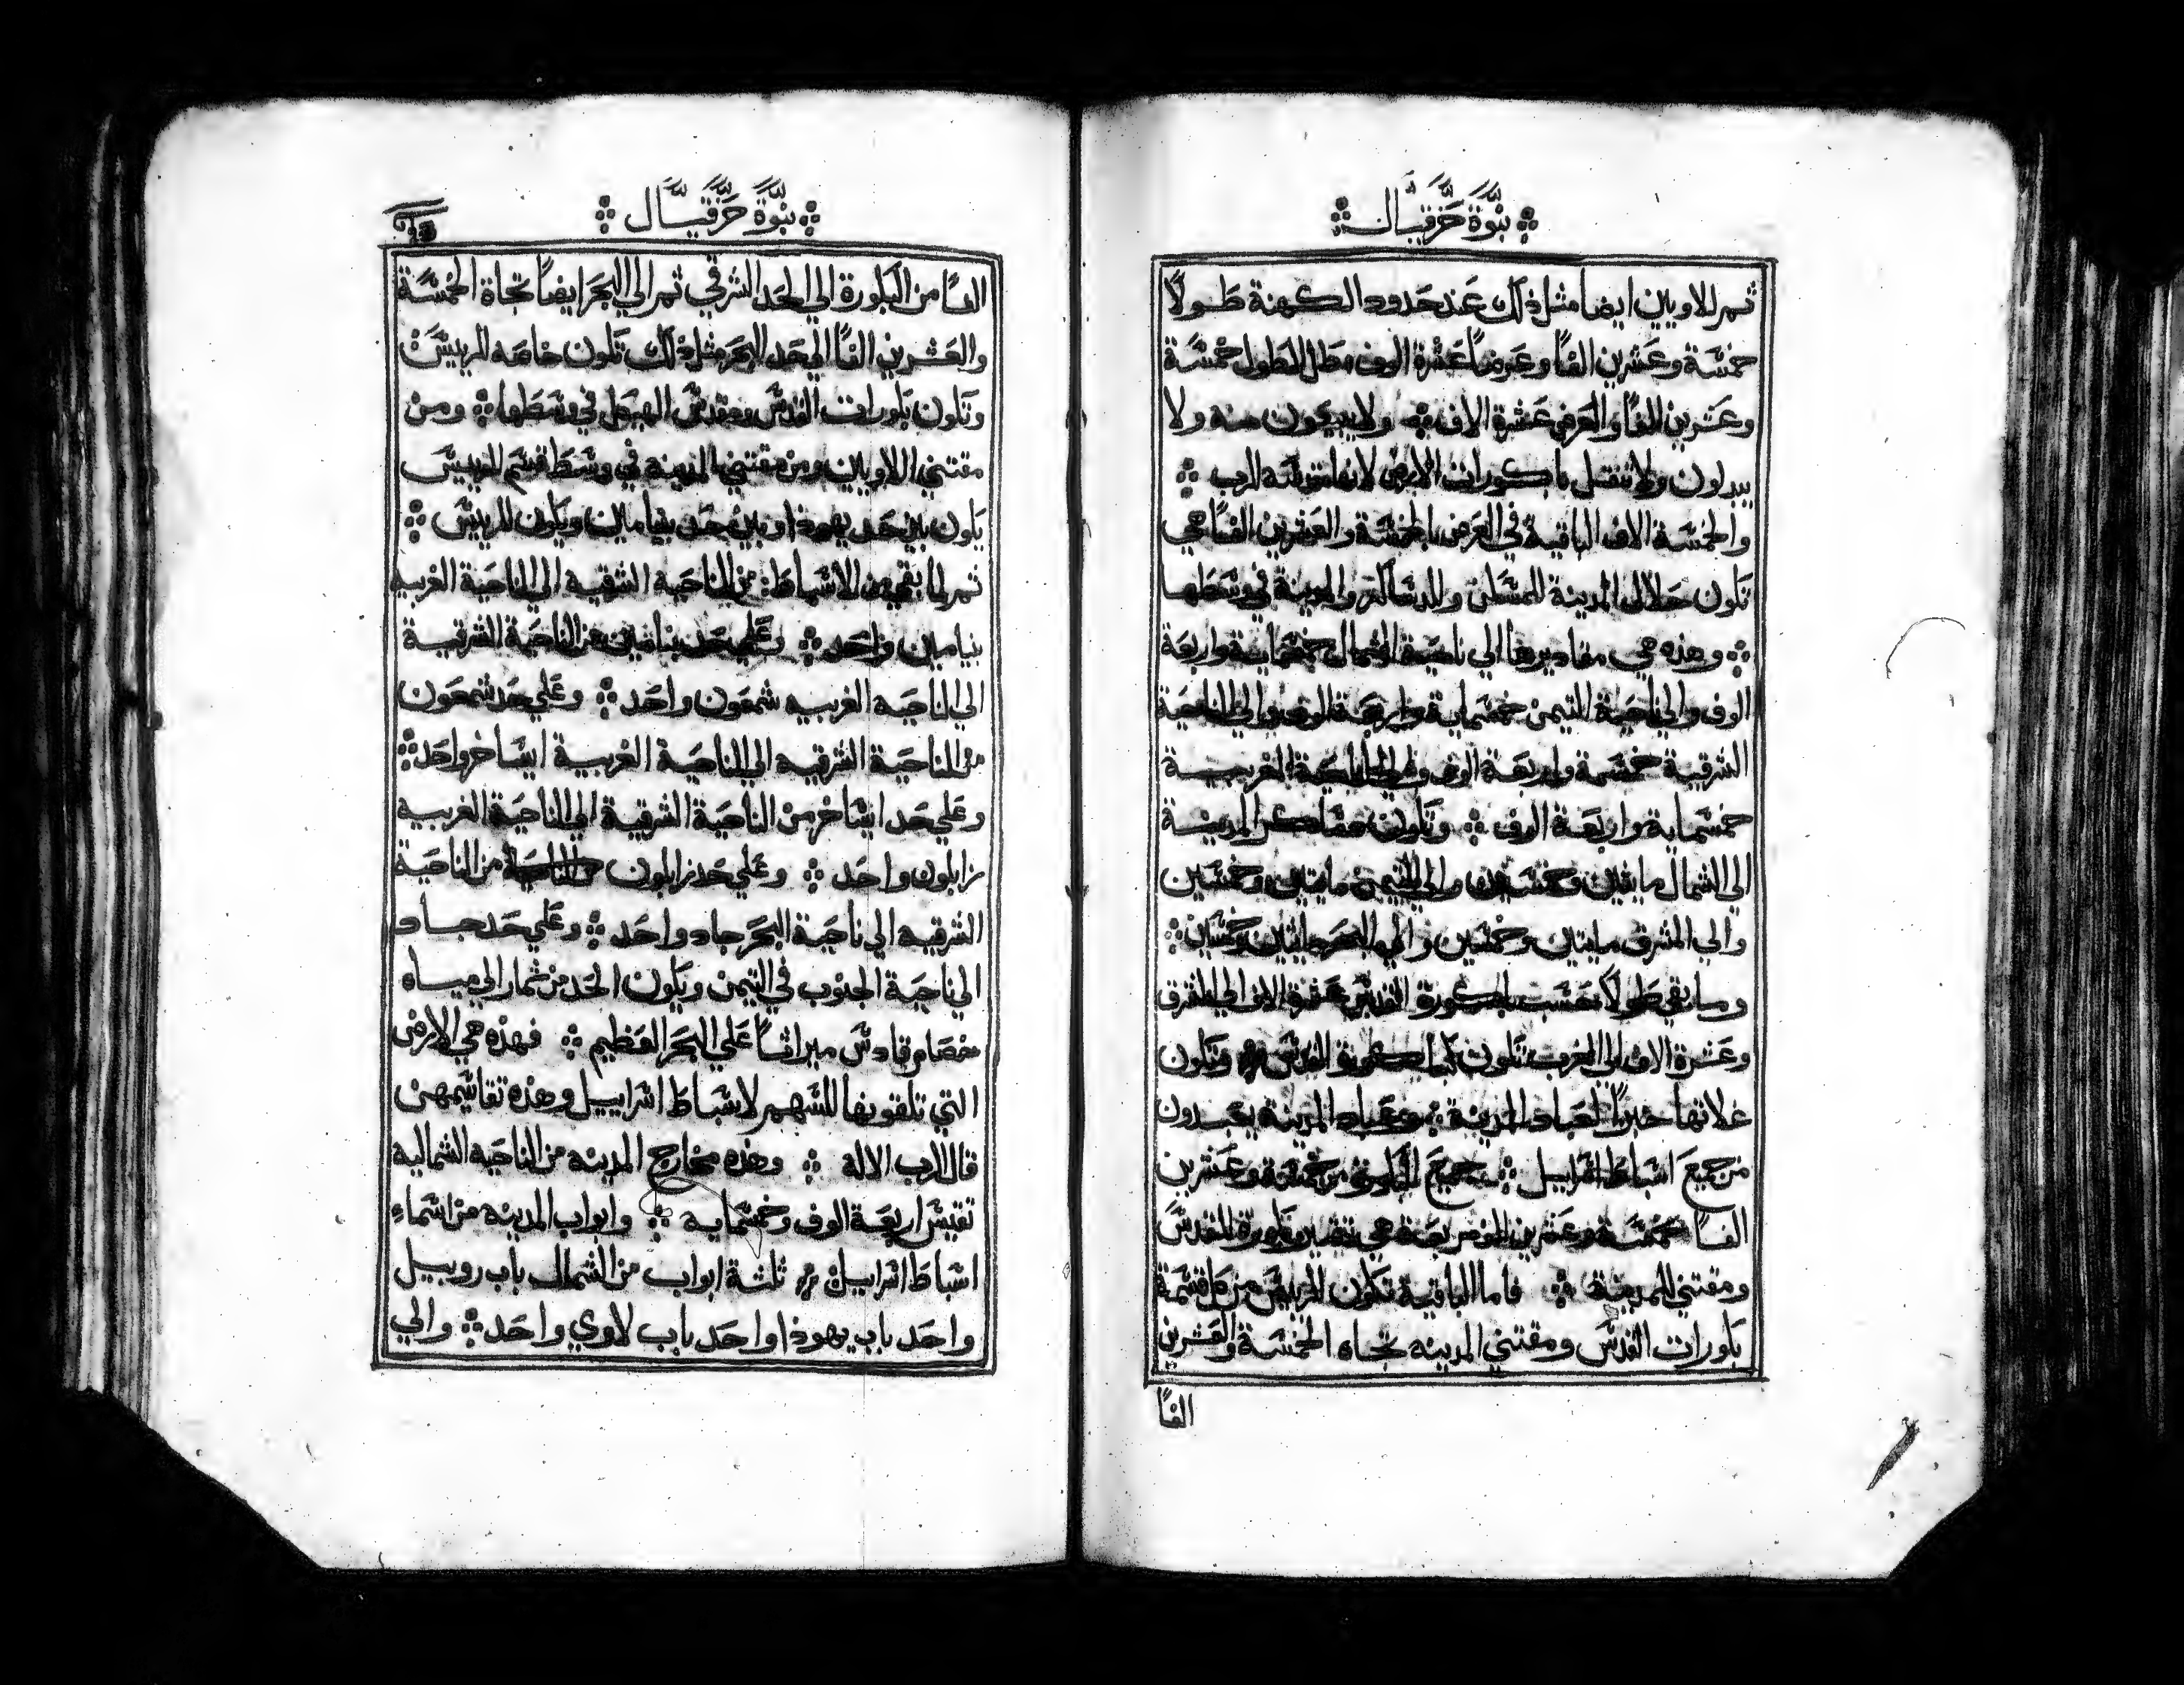 نبوة حزقيال
ثم للاويين ايضا مثل ذلك عند حدود الكهنة طولاً
خمسة وعشرين الفاً وعرضاً عشرة الوف مطل الطول خمسة
وعشرين الفاً والعرض عشرة الاف ولا يبيعون منه ولا
يبدلون ولا تنتقل باكورات الارض لانها تقدمة الرب
والخمسة الاف الباقية في العرض بالخمسة والعشرين الفاً هي
تكون حلال المدينة للمسكن وللدساكر والمدينة في وسطها
وهذه هي مقاديرها الي ناحية الشمال خمسماية واربعة
الوف والي ناحية التيمن خمسماية واربعة الوف والي الناحية
الشرقية خمسمة واربعة الوف والي الناحية الغربية
خمسماية واربعة الوف وتكون مساكن المدينة
الي الشمال مايتين وخمسين والي التيمن مايتين وخمسين
والي المشرق مايتين وخمسين والي البحر مايتين وخمسين
وما بقي طولاً بحسب باكورة القدس عشرة الاف الي المشرق
وعشرة الاف الي الغرب تكون باكورة القدس وتكون
غلاتها خبزاً لعباد المدينة وعباد المدينة يعبدون
من جميع اسباط اسراييل جميع البكورة من خمسة وعشرين
الفاً خمسة وعشرين الف مربعة هي باكورة القدس
ومقتني المدينة فاما الباقية تكون للرييس من كل قسمة
بكورات القدس ومقتني المدينه تجاه الخمسة والعشرين
الفاً
نبوة حزقيال
الفاً من البكورة الي الحد الشرقي ثم الي البحر ايضاً تجاة الخمسة
والعشرين الفاً الي حد البحر مثل ذلك تكون خاصه للرييس
وتكون بكورات القدس ومقدس الهيكل في وسطها ومن
مقتني اللاويين ومن مقتني المدينه في وسط قسم للرييس
يكون بين حد يهوذا وبين حد بنيامين ويكون للرييس
ثم لما بقي من الاسباط من الناحيه الشرقيه الي الناحية الغربيه
بنيامين واحد وعلي حد بنيامين من الناحية الشرقية
الي الناحيه الغربيه شمعون واحد وعلي حد شمعون
من الناحية الشرقيه الي الناحية الغربية ايساخر واحد
وعلي حد ايساخر من الناحية الشرقية الي الناحية الغربيه
زابلون واحد وعلي حد زابلون من الناحية
الشرقيه الي ناحية البحر جاد واحد وعلي حد جاد
الي ناحية الجنوب في التيمن ويكون الحد من ثمار الي مياه
خصام قادس ميراثاً علي البحر العظيم فهذه هي الارض
التي تلقونها للسهم لاسباط اسراييل وهذه تقاسيمهن
قال الرب الاله وهذه مخارج المدينه من الناحيه الشماليه
تقيس اربعة الوف وخمسمايه وابواب المدينه من اسماء
اسباط اسراييل ثلثة ابواب من الشمال باب روبيل
واحد باب يهوذا واحد باب لاوي واحد والي